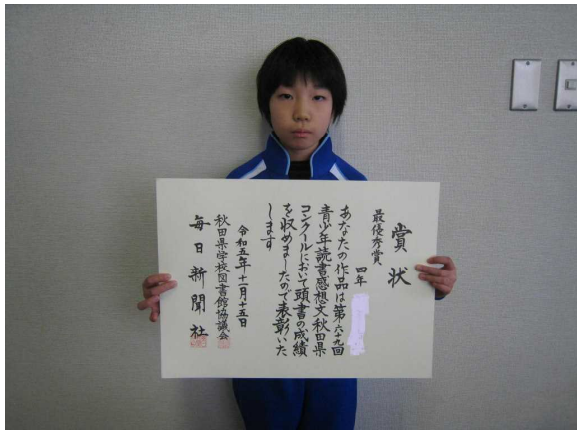 賞状
最優秀賞
四年
あなたの作品は第六十九回
青少年読書感想文秋田県
コンクールにおいて頭書の成績
を収めましたので表彰いた
します
令和五年十一月十五日
秋田県学校図書館協議会
毎日新聞社